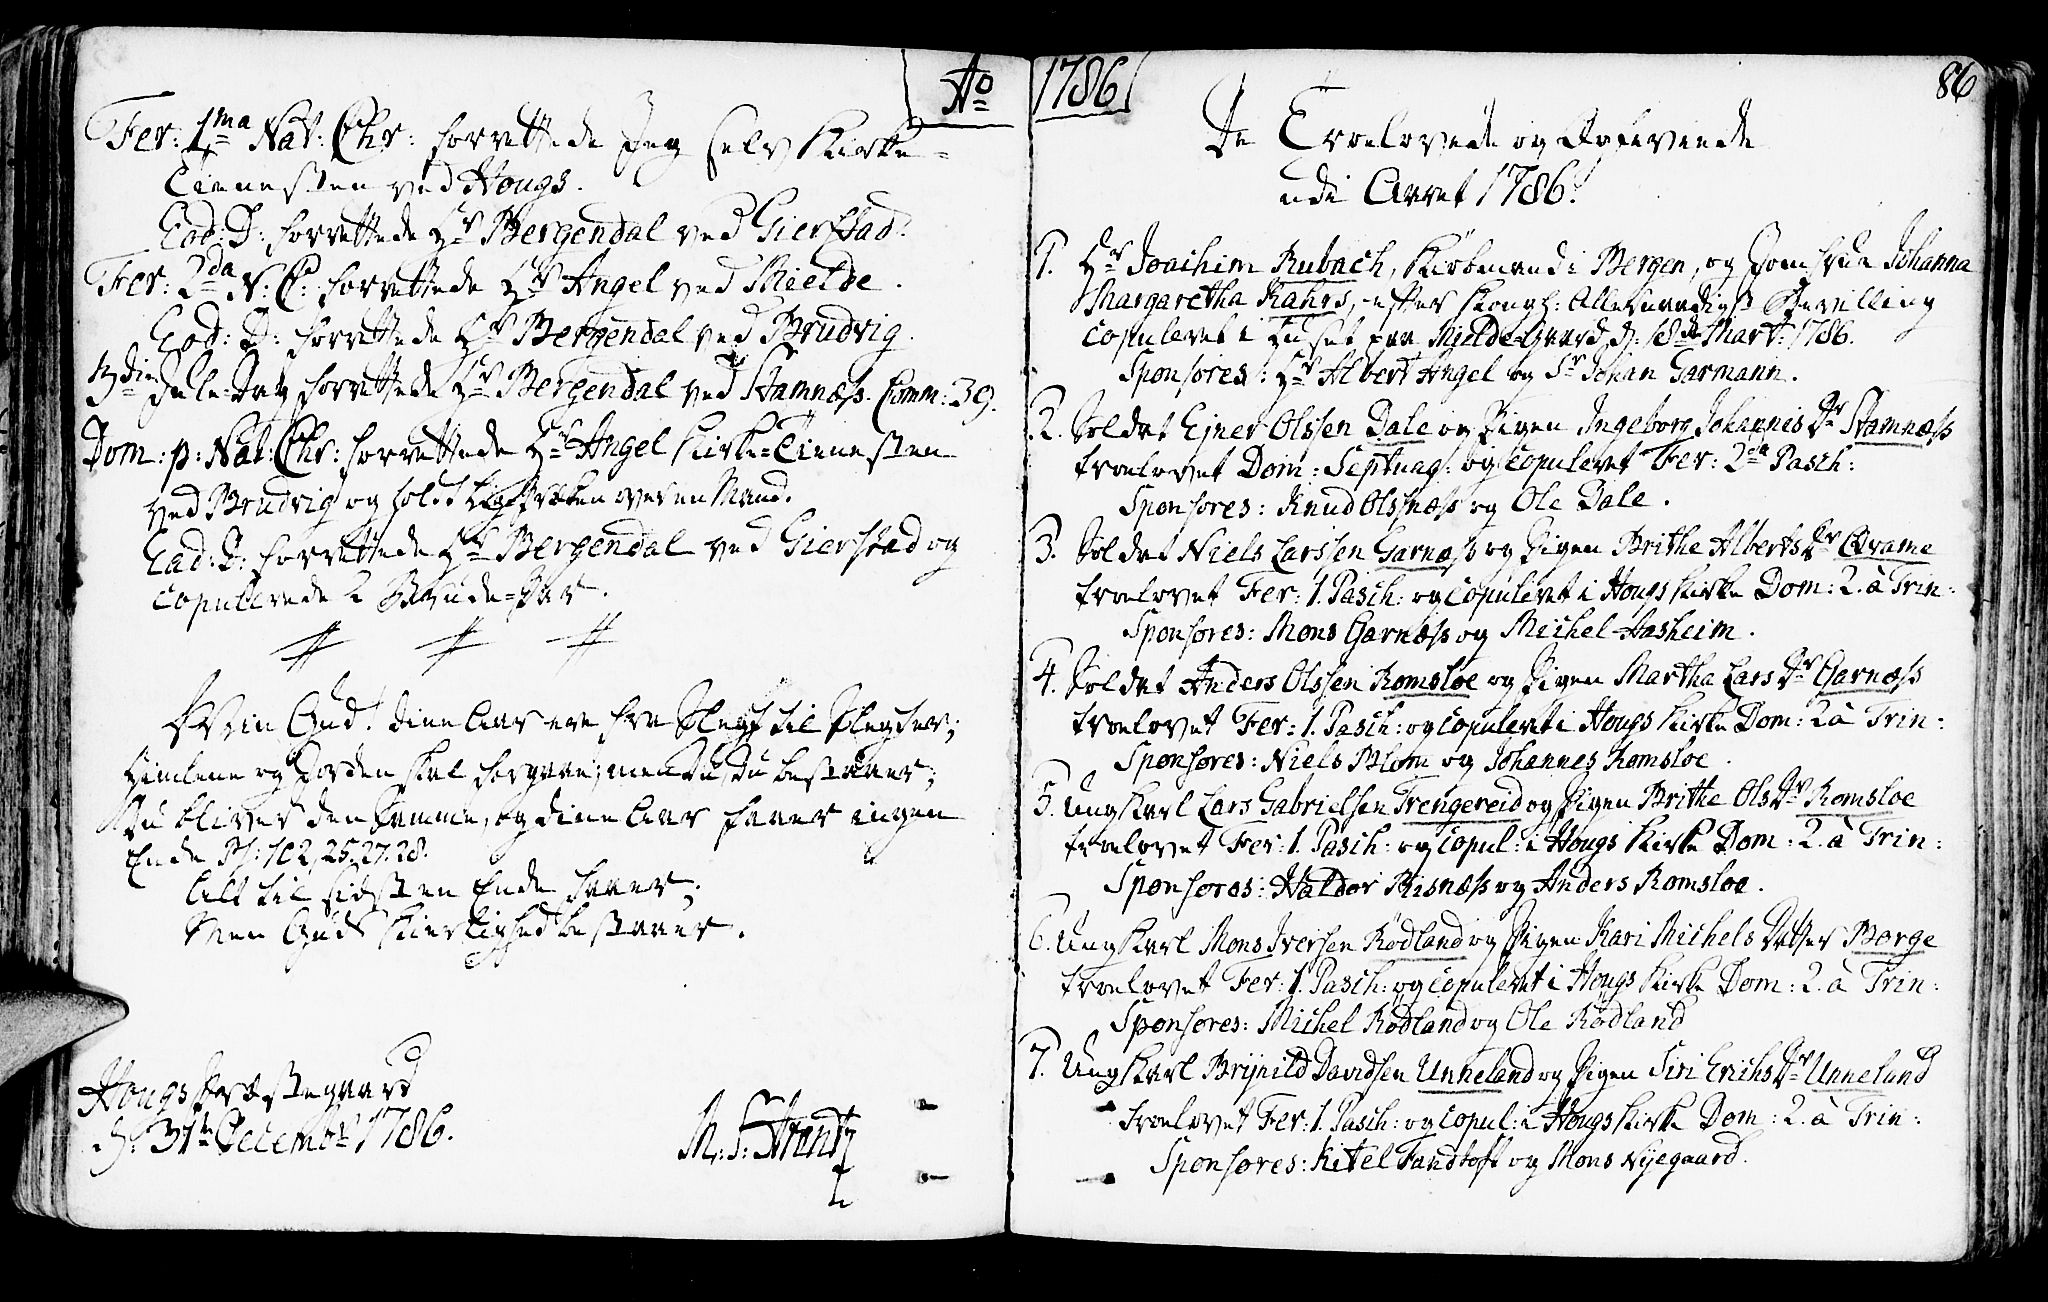 Ao 1786
Fer: 1ma Nat: Chr: forrettede Jeg selv Kirke-
Tienesten ved Hougs.
Eod: D: forrettede Hr Bergendal ved Gierstad.
Fer: 2da N: C: forrettede Hr Angel ved Mielde.
Eod: D: forrettede Hr Bergendal ved Brudvig.
3die Jule-Dag forrettede Hr Bergendal ved Stamnæss. Comm: 39.
Dom: p: Nat: Chr: forrettede Hr Angel Kirke-Tienesten
ved Brudvig og holdt Ligpræken over en Mand.
Ead: D: forrettede Hr Bergendal ved Gierstad og
copulerede 2 Brude-Par.
Min Gud! dine Aar ere fra Slegt til Slegter;
Himlene og Jorden skal forgaae; men Du, Du bestaaer;
Du bliver den samme, og dine Aar faaer ingen
Ende Ps: 102, 25. 27. 28.
Alt til sidsten Ende faaer;
Men Guds Kierlighed bestaaer.
Hougs Præstegaard
d: 31te Decembr 1786.
M: S: Arentz
86
De Troelovede og Copulerede
udi Aaret 1786.
1. Hr Joachim Rubach, Kiøbmand i Bergen, og Jomfrue Johanna
Margaretha Kahrs, efter Kongl: Allernaadigst Bevilling
copuleret i Huset paa Mielde-Gaard d: 18de Mart: 1786.
Sponsores: Hr Albert Angel og Sr Johan Garmann.
2. Soldat Ejner Olssen Dale og Pigen Ingeborg Johannis Dr Stamnæss
troelovet Dom: Septuag: og copuleret Fer: 2da Pasch:
Sponsores: Knud Olssnæss og Ole Dale.
3. Soldat Niels Larssen Garnæss og Pigen Brithe Alberts Dr Qvame
troelovet Fer: 1. Pasch: og copuleret i Hougs Kirke Dom: 2. à Trin:
Sponsores: Mons Garnæss og Michel Aasheim.
4. Soldat Anders Olssen Romsloe og Pigen Martha Lars Dr Garnæss
troelovet Fer: 1. Pasch: og copuleret i Hougs Kirke Dom: 2 à Trin:
Sponsores: Niels Blom og Johannes Romsloe.
5. Ungkarl Lars Gabrielsen Trengereid og Pigen Brithe Ols Dr Romsloe
troelovet Fer: 1. Pasch: og copul: i Hougs Kirke Dom: 2. à Trin:
Sponsores: Haldor Risnæss og Anders Romsloe.
6. Ungkarl Mons Iversen Rødland og Pigen Kari Michels Datter Borge
troelovet Fer: 1. Pasch: og copuleret i Hougs Kirke Dom: 2. à Trin:
Sponsores: Michel Rødland og Ole Rødland
7. Ungkarl Brynild Davidsen Unneland og Pigen Siri Erichs Dr Unneland
troelovet Fer: 1. Pasch: og copul: i Hougs Kirke Dom: 2. à Trin:
Sponsores: Kitel Fandtoft og Mons Nyegaard.